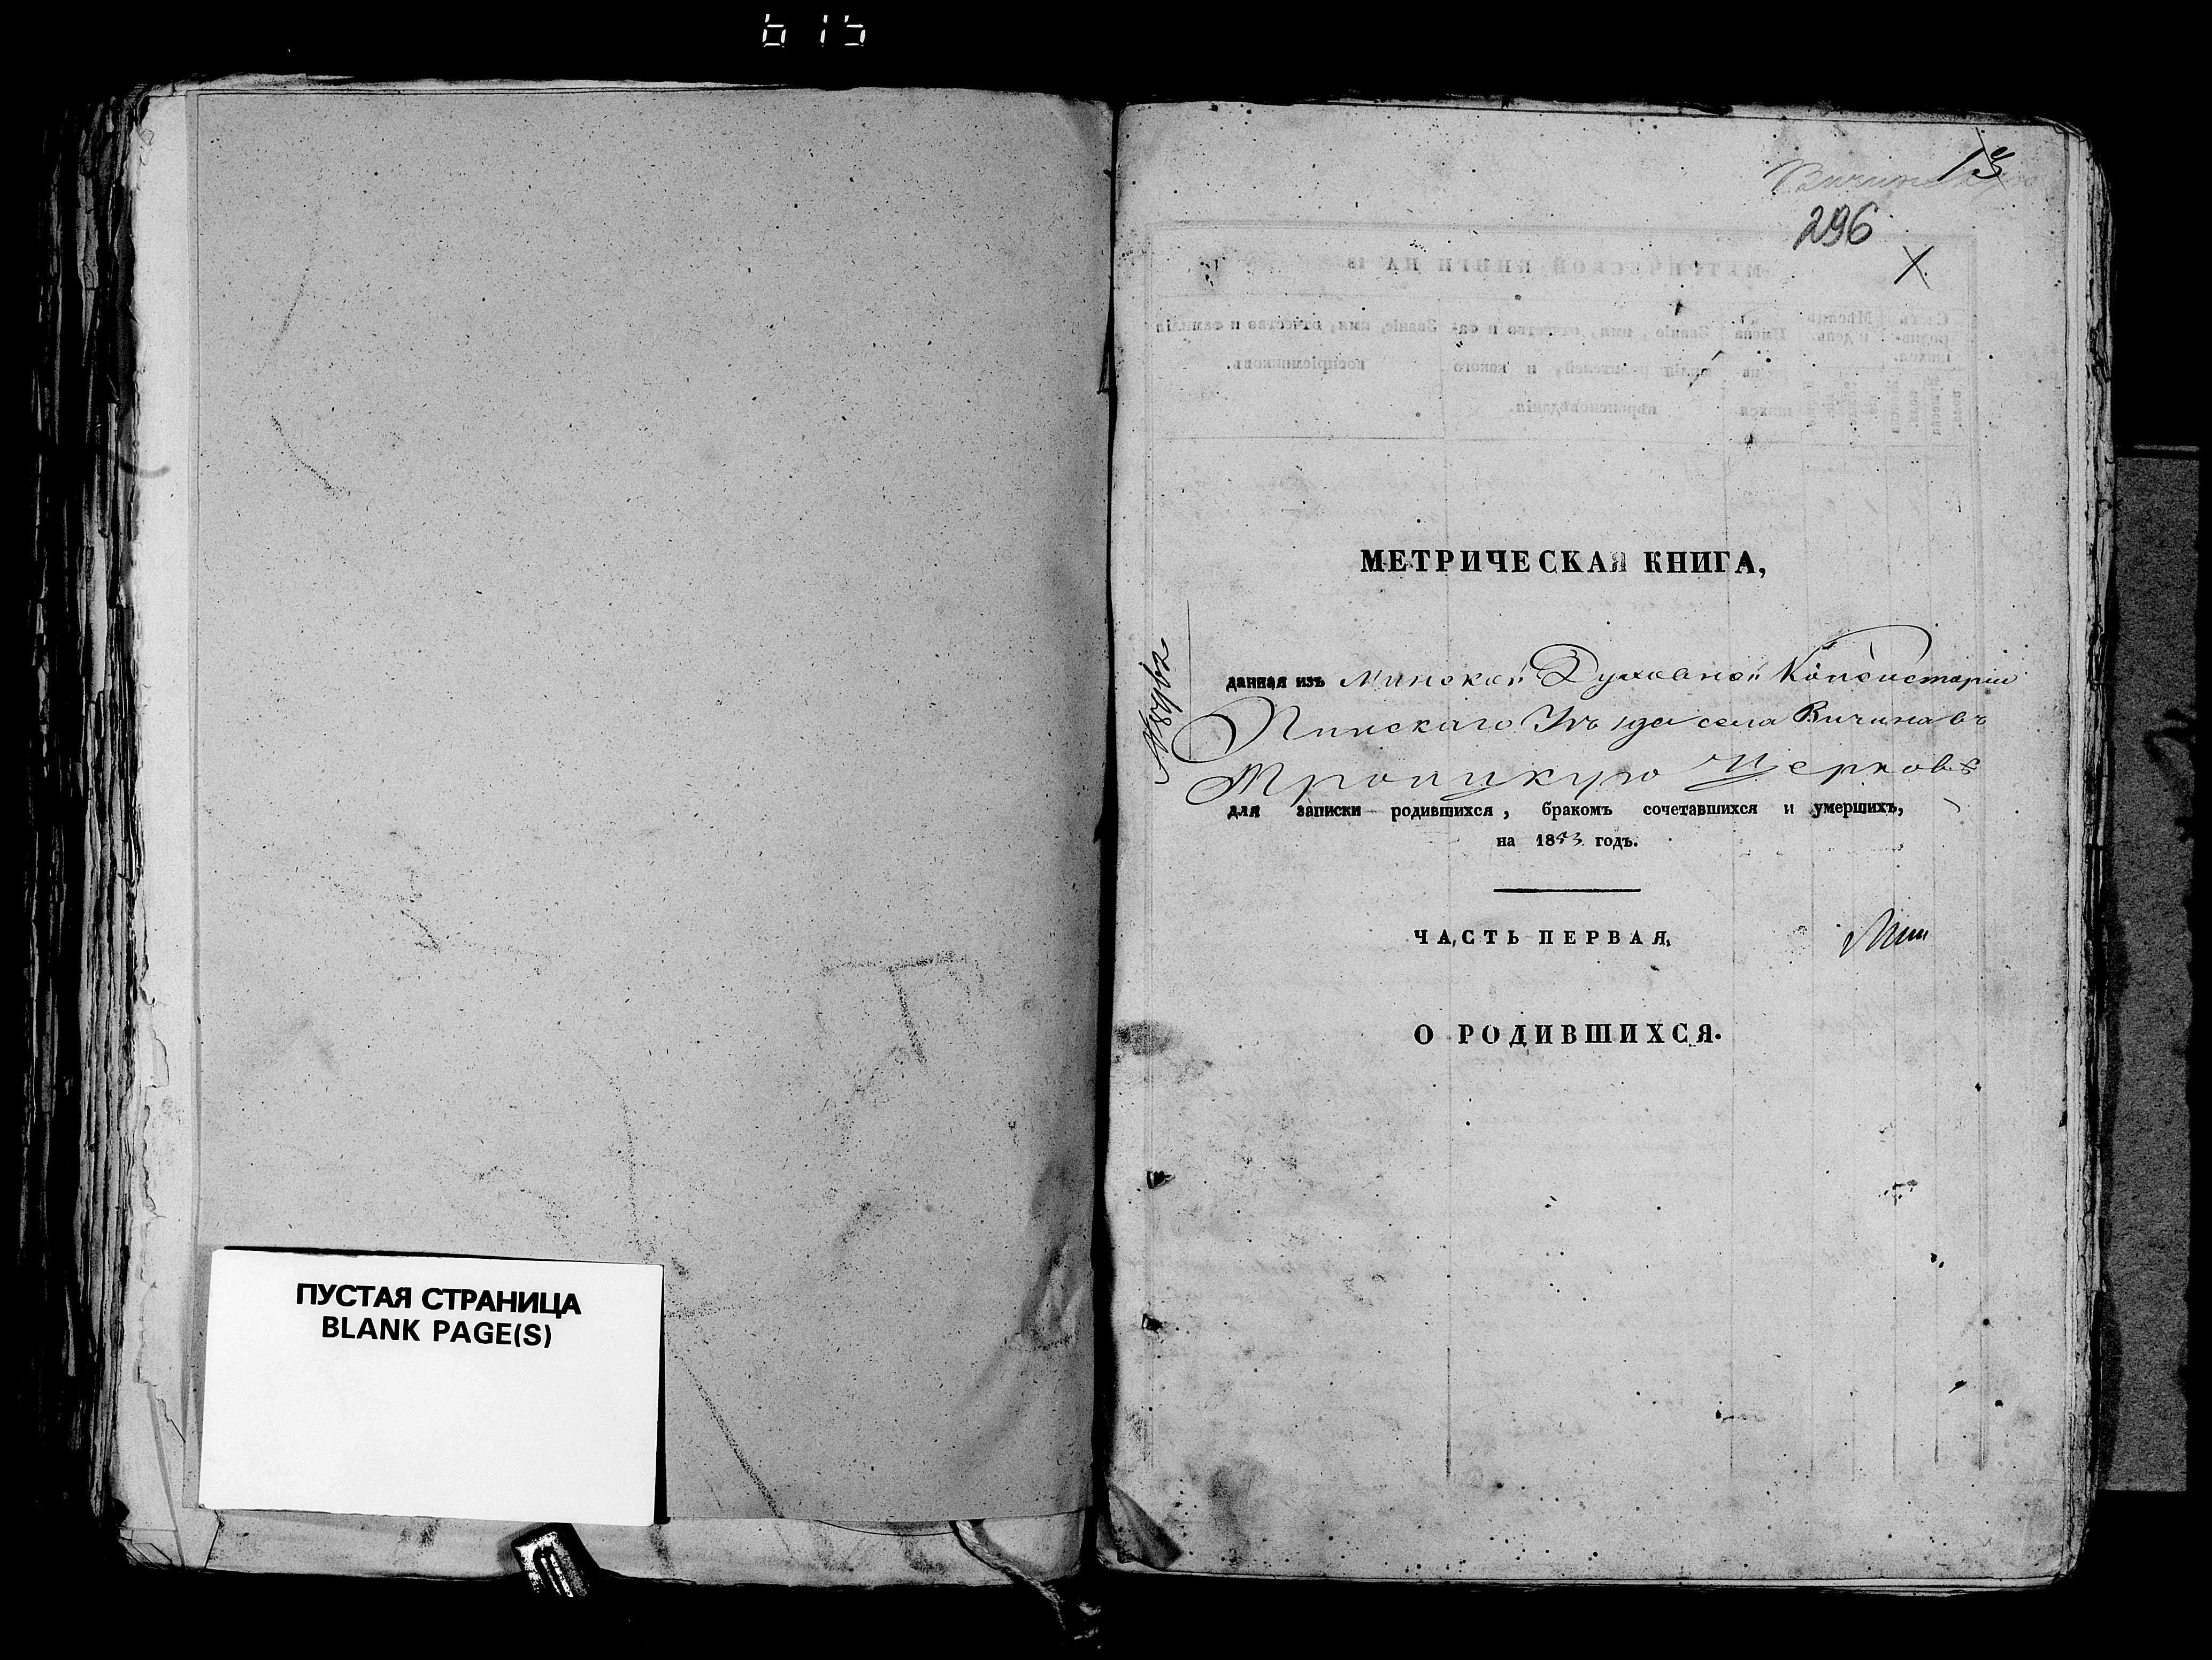 615
ПУСТАЯ СТРАНИЦА
BLANK PAGE(S)
13
296
МЕТРИЧЕСКАЯ КНИГА,
данная изъ Минской Духовной Консисторіи
Пинскаго Уѣзда села Вичина въ
Троицкую Церковь
для записки родившихся, бракомъ сочетавшихся и умершихъ,
на 1853 годъ.
ЧАСТЬ ПЕРВАЯ,
О РОДИВШИХСЯ.